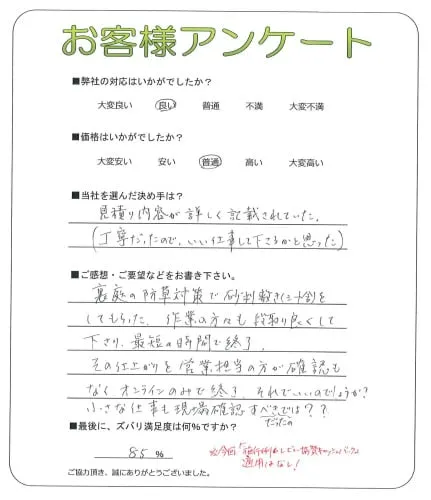 お客様アンケート
■弊社の対応はいかがでしたか？
大変良い 良い 普通 不満 大変不満
■価格はいかがでしたか？
大変安い 安い 普通 高い 大変高い
■当社を選んだ決め手は？
見積り内容が詳しく記載されていた。
(丁寧だったので、いい仕事して下さるかと思った)
■ご感想・ご要望などをお書き下さい。
裏庭の防草対策で砂利敷き
してもらった。作業の方々も段取り良くして
下さり、最短の時間で終了。
その仕上がりを営業担当の方が確認も
なくオンラインのみで終了。それでいいのでしょうか？
小さな仕事も現場確認すべきでは？？
だったの
■最後に、ズバリ満足度は何％ですか？
85 %
※今回
適用はなし！
ご協力頂き、誠にありがとうございました。